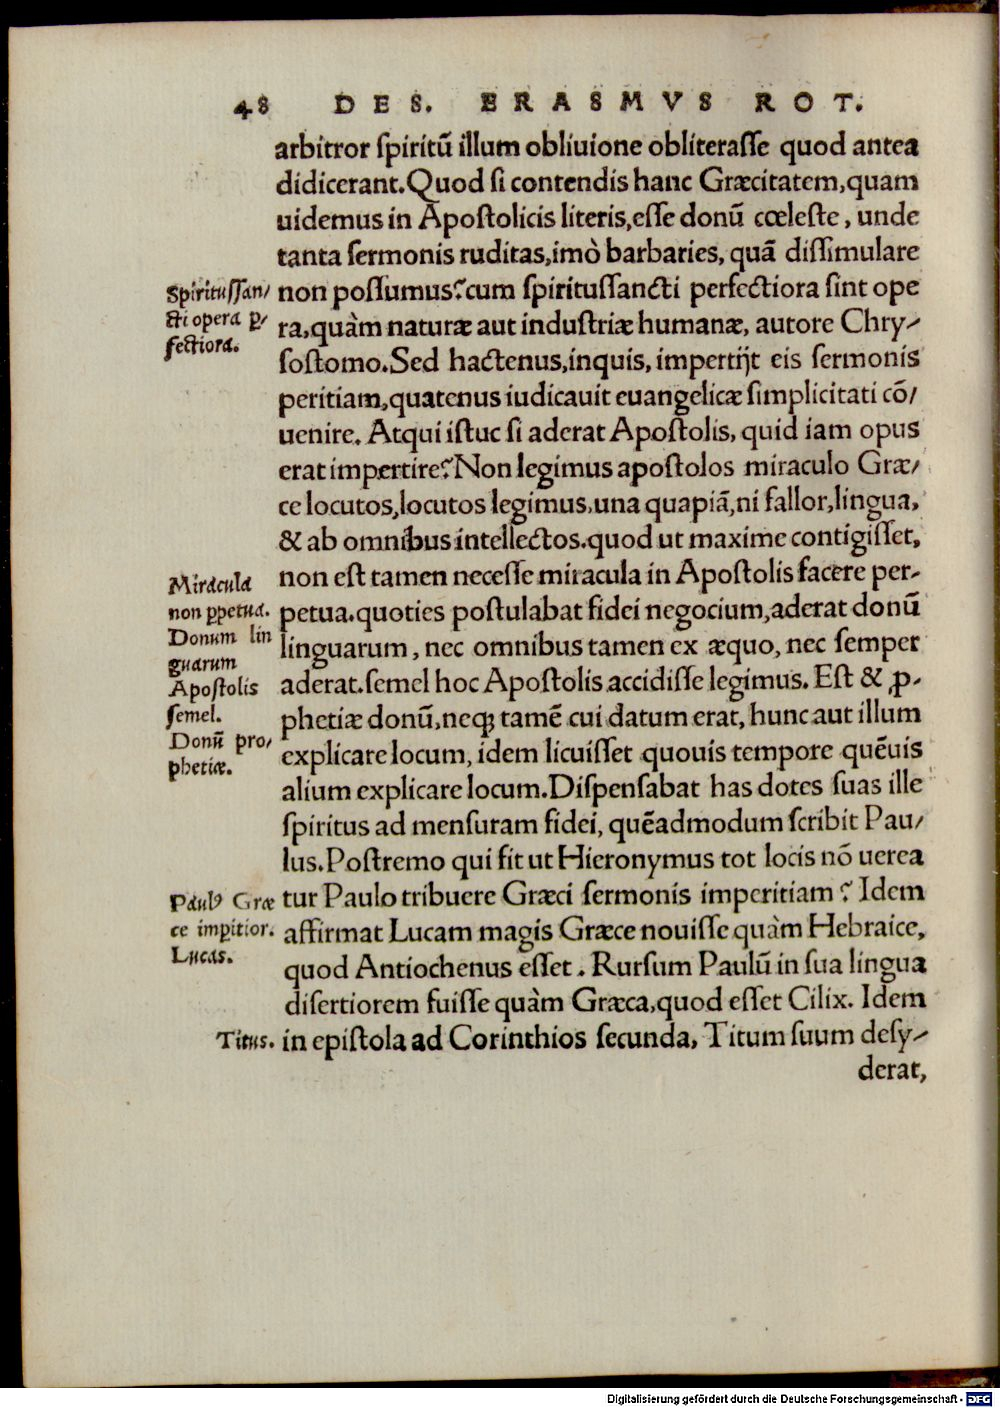 48 DES. ERASMVS ROT.
arbitror ſpiritū illum obliuione obliteraſſe quod antea
didicerant.Quod ſi contendis hanc Græcitatem,quam
uidemus in Apoſtolicis literis,eſſe donū cœleſte, unde
tanta ſermonis ruditas,imò barbaries, quā diſſimulare
non poſſumus? cum ſpirituſſancti perfectiora ſint ope
ra,quàm naturæ aut induſtriæ humanæ, autore Chry-
ſoſtomo.Sed hactenus,inquis, impertijt eis ſermonis
peritiam,quatenus iudicauit euangelicæ ſimplicitati cō/
uenire. Atqui iſtuc ſi aderat Apoſtolis, quid iam opus
erat impertire? Non legimus apoſtolos miraculo Græ/
ce locutos,locutos legimus,una quapiā,ni fallor,lingua,
& ab omnibus intellectos.quod ut maxime contigiſſet,
non eſt tamen neceſſe miracula in Apoſtolis facere per-
petua.quoties poſtulabat fidei negocium,aderat donū
linguarum, nec omnibus tamen ex æquo, nec ſemper
aderat.ſemel hoc Apoſtolis accidiſſe legimus. Eſt & ꝓ-
phetiæ donū,neqꝫ tamē cui datum erat, hunc aut illum
explicare locum, idem licuiſſet quouis tempore quēuis
alium explicare locum.Diſpenſabat has dotes ſuas ille
ſpiritus ad menſuram fidei, quēadmodum ſcribit Pau/
lus.Poſtremo qui fit ut Hieronymus tot locis nō uerea
tur Paulo tribuere Græci ſermonis imperitiam? Idem
affirmat Lucam magis Græce nouiſſe quàm Hebraice,
quod Antiochenus eſſet. Rurſum Paulū in ſua lingua
diſertiorem fuiſſe quàm Græca,quod eſſet Cilix. Idem
in epiſtola ad Corinthios ſecunda, Titum ſuum deſy-
derat,
Spirituſſan/
cti opera ꝑ/
fectiora.
Miracula
non ꝑpetua.
Donum lin
guarum
Apoſtolis
ſemel.
Donū pro/
phetiæ.
Paulꝰ Græ
ce imꝑitior.
Lucas.
Titus.
Digitalisierung gefördert durch die Deutsche Forschungsgemeinschaft - DFG